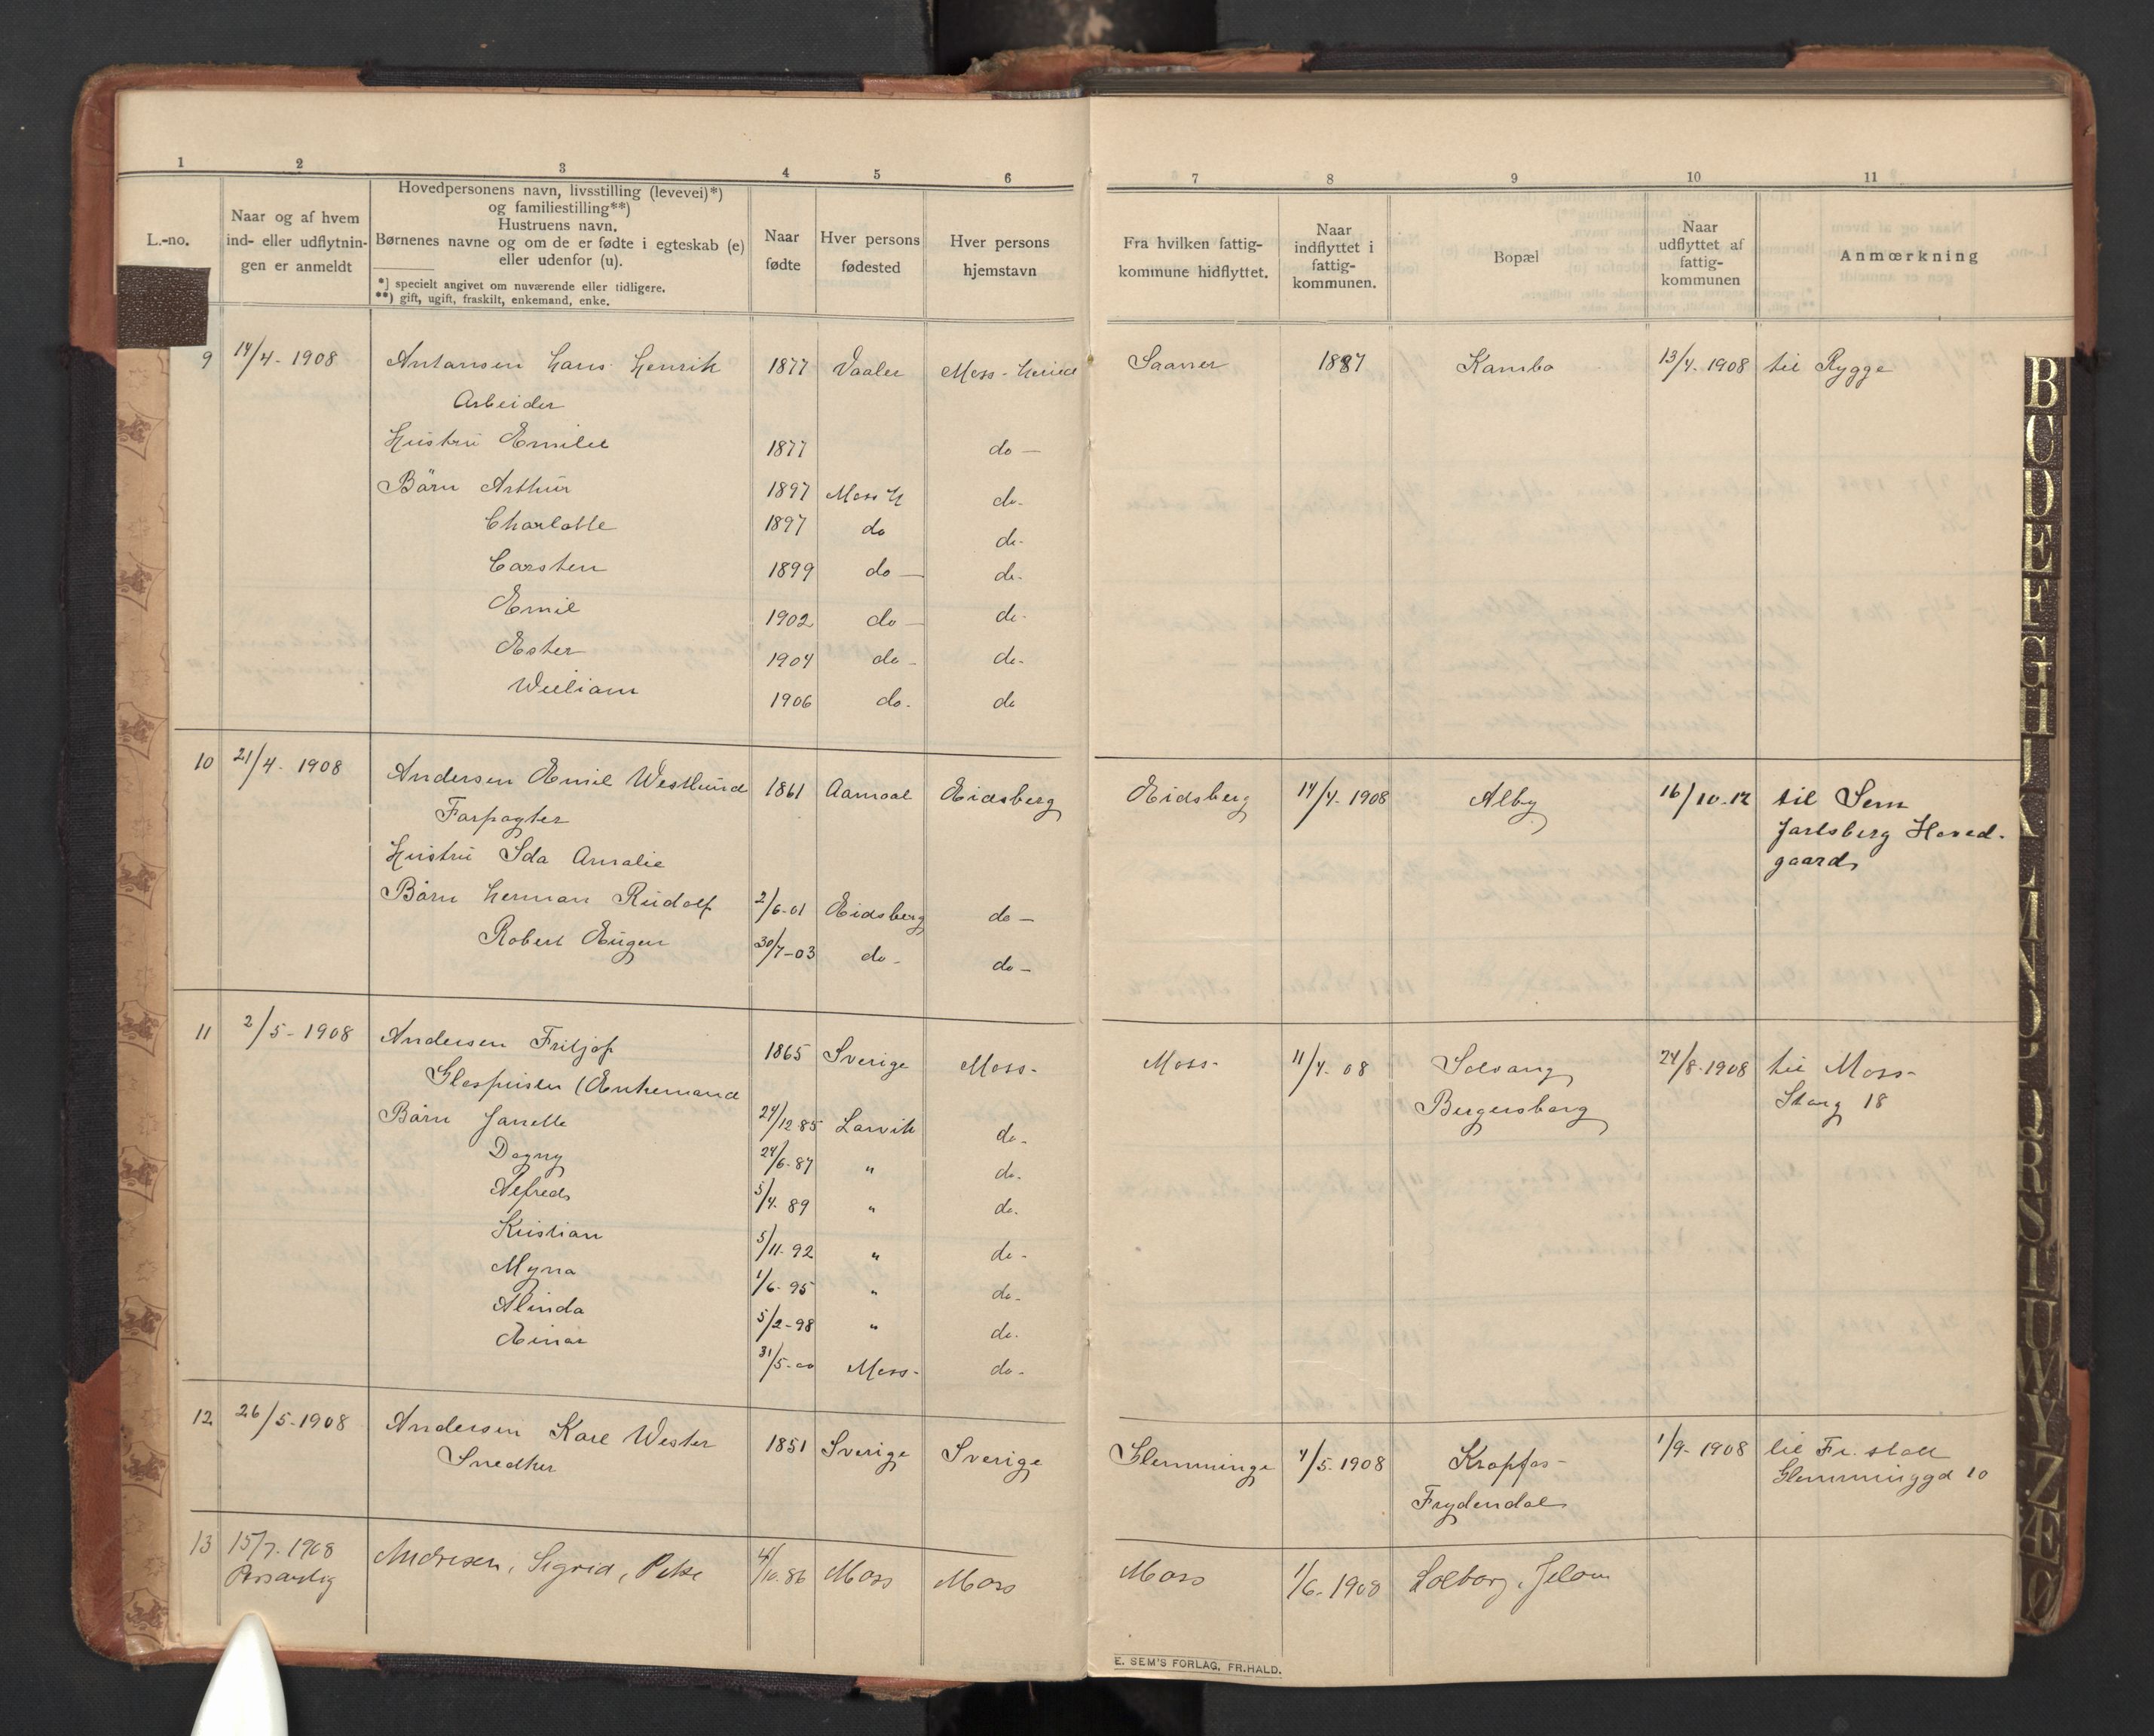 1 2 3 4 5 6 7 8 9 10 11
L.-no.
Naar og af hvem
ind- eller udflytnin-
gen er anmeldt
Hovedpersonens navn, livsstilling (levevei)*)
og familiestilling**)
Hustruens navn.
Børnenes navne og om de er fødte i egteskab (e)
eller udenfor (u).
*) specielt angivet om nuværende eller tidligere.
**) gift, ugift, fraskilt, enkemand, enke.
Naar
fødte
Hver persons
fødested
Hver persons
hjemstavn
Fra hvilken fattig-
kommune hidflyttet.
Naar
indflyttet i
fattig-
kommunen.
Bopæl
Naar
udflyttet af
fattig-
kommunen
Anmærkning
9 14/4- 1908 Antonsen Hans Henrik 1877 Vaaler Moss - Saaner 1887 Kambo 13/4-1908 til Rygge
Arbeider
Hustru Emilie 1877 do -
Børn Arthur 1897 Moss H do-
Charlotte 1897 do do-
Carsten 1899 do - do-
Emil 1902 do - do-
Ester 1904 do - do-
William 1906 do. do
10 21/4- 1908 Andersen Emil Westlund 1861 Aamaal Eidsberg Eidsberg 14/4-1908 Alby 16/10-12 til Sem
Forpagter Jarlsberg Hoved-
Hustru Ida Amalie gaard
Børn Herman Rudolf 2/6-01 Eidsberg do -
Robert Eugen 30/7-03 do - do -
11 2/5- 1908 Andersen Fritjof 1865 Sverige Moss- Moss- 11/4-08 Solvang 24/8-1908 til Moss-
Glaspuster (Enkemand Bergersborg Storg 18
Børn Janette 24/12 85 Larvik do-
Dagny 24/6-87 " do-
Alfred 5/4-89 " do.
Kristian 5/11-92 " do-
Myrna 1/6-95 " do-
Alinda 5/2-98 " do.
Einar 31/5-00 Moss- do-
12 26/5-1908 Andersen Karl Wester 1851 Sverige Sverige Glemminge 4/5-1908 Krapfos- 1/9-1908 til Fr. stad
Snedker Frydendal Glemminggd 10
13 15/7-1908 Andresen, Sigrid, 4/10.86 Moss Moss Moss 1/6-1908 Solborg, Jeløen
Personlig
E. SEM'S FORLAG, FR.HALD.
B
C
D
E
F
G
H
J
K
L
M
N
O
P
Q
R
S
T
U
W
Y
Z
Æ
Ø